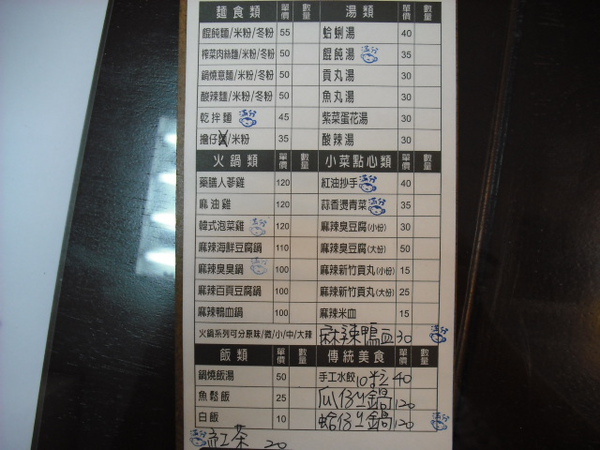 麵食類 單價 數量 湯類 單價 數量
餛飩麵/米粉/冬粉 55 蛤蜊湯 40
榨菜肉絲麵/米粉/冬粉 50 餛飩湯 滿分 35
鍋燒意麵/米粉/冬粉 50 貢丸湯 30
酸辣麵/米粉/冬粉 50 魚丸湯 30
乾拌麵 滿分 45 紫菜蛋花湯 30
擔仔麵/米粉 35 酸辣湯 30
火鍋類 單價 數量 小菜點心類 單價 數量
藥膳人蔘雞 120 紅油抄手 滿分 40
麻油雞 120 蒜香燙青菜 滿分 35
韓式泡菜雞 滿分 120 麻辣臭豆腐(小份) 30
麻辣海鮮豆腐鍋 110 麻辣臭豆腐(大份) 50
麻辣臭臭鍋 滿分 100 麻辣新竹貢丸(小份) 15
麻辣百頁豆腐鍋 100 麻辣新竹貢丸(大份) 25
麻辣鴨血鍋 100 麻辣米血 15
火鍋系列可分原味/微/小/中/大辣 麻辣鴨血 30 滿分
飯類 單價 數量 傳統美食
鍋燒飯湯 50 手工水餃 10粒 40
魚鬆飯 25 瓜仔ㄐ鍋 120
白飯 10 蛤仔ㄐ鍋 120 滿分
滿分 紅茶 20